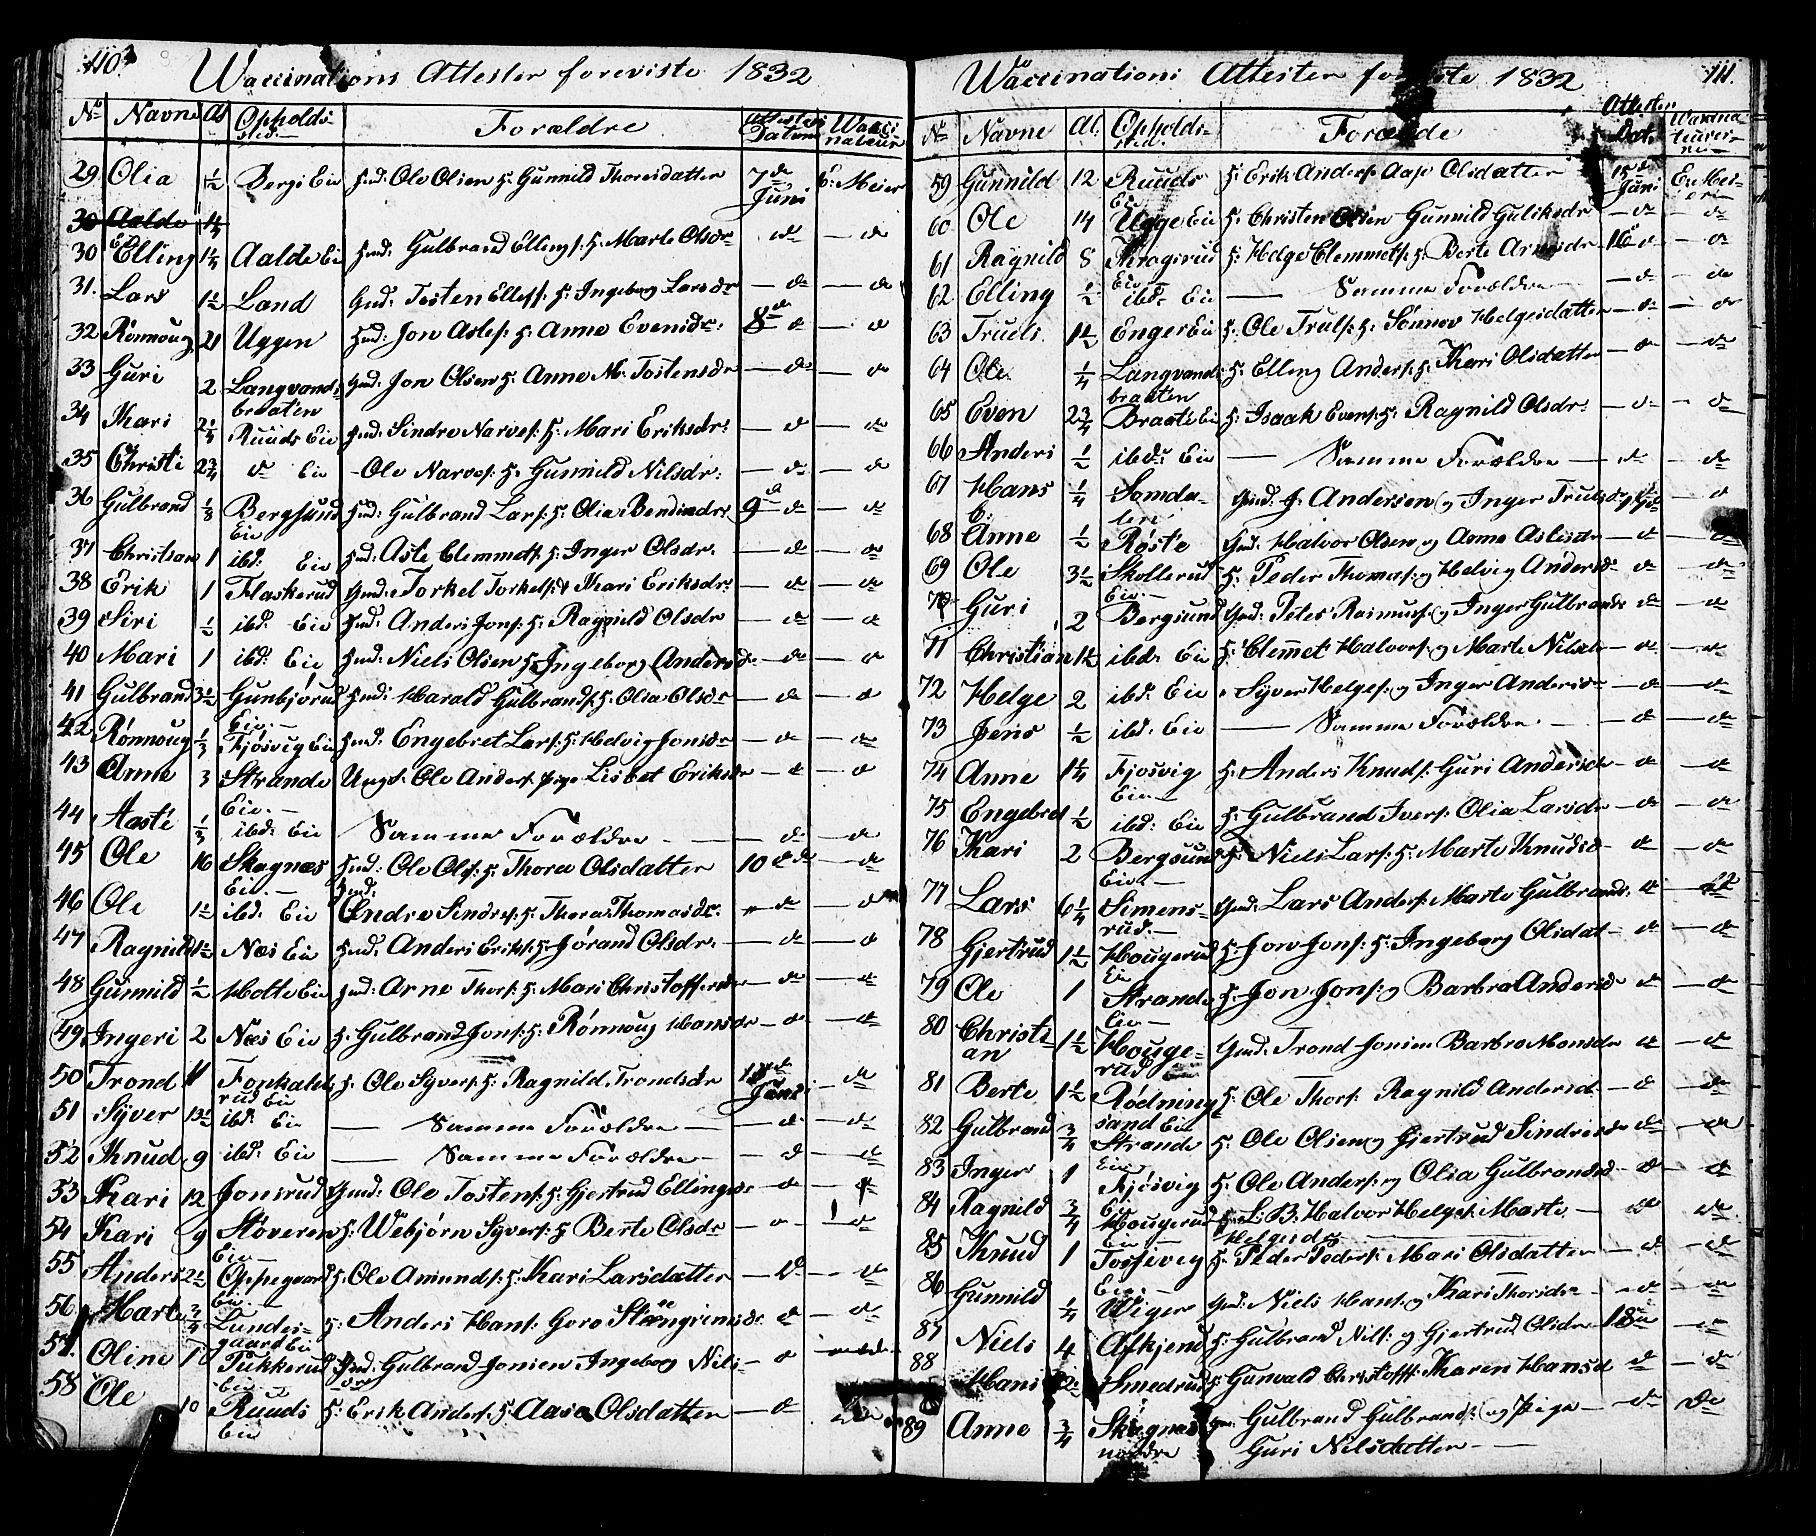 110
Waccinations Attester foreviste 1832
No Navne Al Opholds- sted. Forældre Attestens Datum Wacci- nateur
29 Olia 1/2 Bergs Eie Hmd: Ole Olsen H: Gunnild Thoresdatter 7de Juni E: Meier
30 Aalde 1/4
30 Elling 1 1/4 Aalde Eie Hmd: Gulbrand Ellings: H: Marte Olsdr — d — — d
31. Lars 1 1/2 Land Gmd: Tosten Ellefs: H: Ingeborg Larsdr — d — — d
32 Rönnoug 21 Uggen Hmd: Jon Aslefs: H: Anne Evensdr: 8de d — d
33 Guri 2 Langvands- braaten Gmd: Jon Olsen H: Anne M: Tostensdr — d — — d
34 Kari 2 1/4 Ruuds Eie Hmd: Sindre Narves: H: Mari Eriksdr: — d — — d
35 Christi 2 3/4 d Eie Ole Narves: H: Gunnild Nilsdr: — d — — d
36 Gulbrand 1/8 Bergsund Eie Hmd: Gulbrand Lars: H: Olia Bendixdr: 9de d — — d
37 Christian 1 ibd: Eie Hmd: Aste Clemmets: H: Inger Olsdr. — d — — d
38 Erik 1 Flaskerud Gmd: Torkel Torkels: & Kari Eriksdr: — d — — d
39 Siri 1/2 ibd: Eie Hmd: Anders Jons: H: Ragnild Olsdr — d — — d
40 Mari 1 ibd: Eie Hmd: Niels Olsen H: Ingeborg Andersdr — d — — d
41 Gulbrand 3 1/2 Gunbjörud Eie. — Hmd: Harald Gulbrands: H: Olia Olsdr — d — — d
42 Rönnoug 1/3 Fjösvig Eie Hmd: Engebret Lars: H: Helvig Jonsdr — d — — d
43 Anne 3 Strande Eie. — Ungk: Ole Anders: pige Lisbet Eriksdr — d — — d
44 Aaste 1/3 ibd: Eie Samme Forældre — — d — — d
45 Ole 16 Skagnæs Eie. — Hmd: Ole Ols: H: Thora Olsdatter 10 d — d
46 Ole 1 1/2 ibd: Eie Hmd: Endre Sindres: H: Thora Thomasdr. — d — — d
47 Ragnild 1 1/2 Næs Eie Hmd: Anders Eriks: H: Jörand Olsdr. — d — — d
48 Gunnild 1/2 Holte Eie Hmd: Arne Thors: H: Mari Christoffersdr — d — — d
49 Ingeri 2 Næs Eie H: Gulbrand Jons: H: Rönnoug Hansdr — d — — d
50 Trond 11 rud Eie H: Ole Syvers: H: Ragnild Trondsdr Juni — d
51 Syver 13 1/2 ibd: Eie — Samme Forældre — — d — — d
52 Knud 9 ibd: Eie — Samme Forældre — — d — — d
53 Kari 12 Jonsrud Gmd: Ole Tostens: H: Gjertrud Ellingsdr — d — — d
54 Kari 9 Stöveren Eie — H: Webjörn Syvers: H: Berte Olsdr — d — — d
55 Anders 2 1/2 Oppegaard Eie. — H: Ole Amunds: H: Kari Larsdatter — d — — d
56 Marte 3/4 Lundes- gaard Eie H: Anders Hans: Goro Steengrimsdr — d — — d
57. Oline Tukkerud Eie Gmd: Gulbrand Jonsen Ingeborg Nils- — d — — d
58 Ole 10 Ruuds Eie H: Erik Anders: H: Aase Olsdatter — d
111.
Waccinations Attester foreviste 1832
No Navne Al. Opholds- sted. Forældre Attester Dat. Waccina teurer- ne
59 Gunnild 12 Ruuds Eie H: Erik Anders: Aase Olsdatter 15de Juni E: Mei- er
60 Ole 14 Ugge Eie H: Christen Olsen Gunnild Guliksdr — d — — d
61 Ragnild 8 Kragsrud Eie H: Helge Clemmets: H: Berte Arnesdr 16 d — — d
62 Elling 1/2 ibd: Eie — Samme Forældre — — d — — d
63 Truels. 1 1/2 Enger Eie H: Ole Truls: H: Sönnov Helgesdatter — d — — d
64 Ole 1/4 Langvands- braaten H: Elling Anders: H: Kari Olsdatter — d — — d
65 Even 2 3/4 Braate Eie H: Isaak Evens: H: Ragnild Olsdr: — d — — d
66 Anders 1/2 ibd: Eie — Samme Forældre — — d — — d
67 Hans 1/4 Somda- len Gmd: J: Andersen og Inger Truls — d
68 Anne 1/2 Röste Gmd: Halvor Olsen og Anne Aslesdr — d — — d
69 Ole 3 1/2 Skollerud Eie. — H: Peder Thomas: og Helvig Andersdr — d — — d
70 Guri 2 Bergsund Gmd: Peter Rasmus: og Inger Gulbrandsdr — d — — d
71 Christian 1 1/2 ibd: Eie H: Clemmet Halvors: og Marte Nilsdr — d — — d
72 Helge 2 ibd: Eie Syver Helges: og Inger Andersdr — d — — d
73 Jens 1/2 ibd: Eie — Samme Forældre. — — d — — d
74 Anne 1 1/4 Fjosvig Eie. — H: Anders Knuds: Guri Andersdr — d — — d
75 Engebret 1/2 ibd: Eie H: Gulbrand Ivers: Olia Larsdr — d — — d
76 Kari 2 Bergsund Eie. — H: Niels Lars: H: Marte Knudsd — d — — d
77 Lars 6 1/4 Simens- rud. — Gmd: Lars Anders: Marte Gulbrandsd. — d — — d
78 Gjertrud 1 1/2 Hougerud Eie H: Jon Jons: H: Ingeborg Olsdat — d — — d
79 Ole 1 Strande Eie. — H: Jon Jons: og Barbra Andersd — d — — d
80 Christi- an 1 1/2 Houge- rud Gmd: Trond Jonsen Barbro Monsdr — d — — d
81 Berte 1 1/2 Rödning sand Eie H: Ole Thors: Ragnild Andersd — d — — d
82 Gulbrand 3/4 Strande Eie H: Ole Olsen og Gjertrud Sindresdr — d — — d
83 Inger 1 Fjösvig Eie H: Ole Anders: og Olia Gulbrandsd — d — — d
84 Ragnild 3/4 Hougerud Eie — H: L: B: Halvor Helges: Marte Helgesdr — — d — — d
85 Knud 1 Torsiveg Eie. — H: Peder Peders: Mari Olsdatter — d — — d
86 Gunnild 1/4 Wiger Gmd: Niels Hans: og Kari Thorsdr — d — — d
87 Niels 4 Afkjend H: Gulbrand Nils: og Gjertrud Olsdr 18de — d
88 Hans 2 Smedrud H: Gunvald Christoffs: Karen Hansd — d — — d
89 Anne 3/4 Skognæs nordre Gulbrand Gulbrands: og Pige — Guri Nilsdatter — — d — d